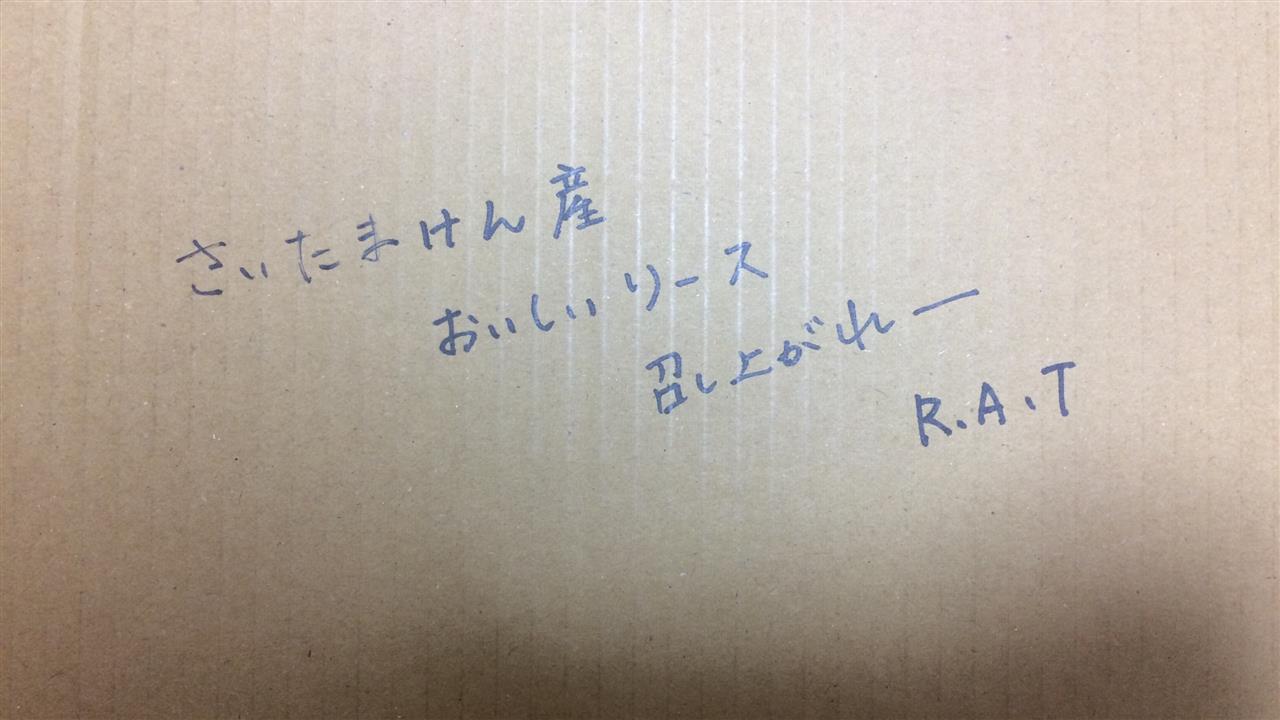 さいたまけん産
おいしいリース
召し上がれー
R.A.T